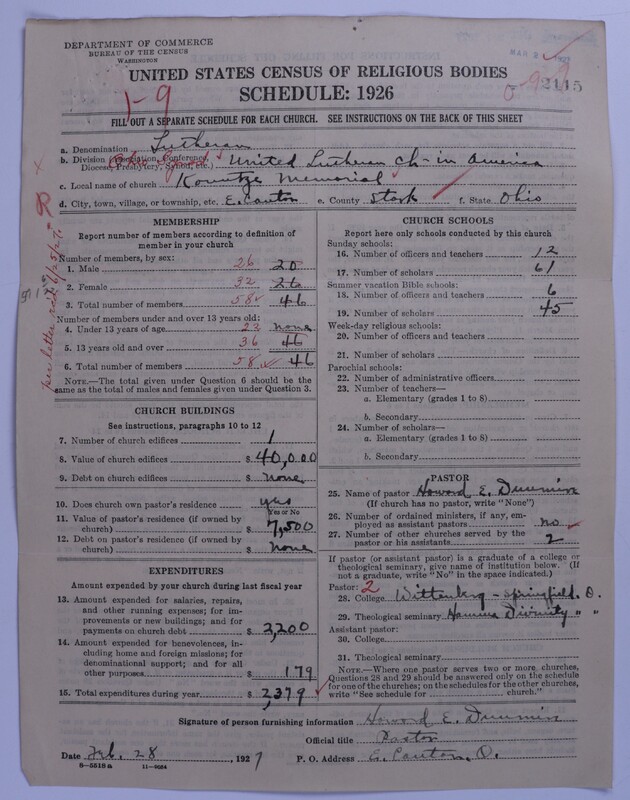 DEPARTMENT OF COMMERCE
BUREAU OF THE CENSUS
WASHINGTON
UNITED STATES CENSUS OF RELIGIOUS BODIES
SCHEDULE: 1926
1-9
2115
FILL OUT A SEPARATE SCHEDULE FOR EACH CHURCH. SEE INSTRUCTIONS ON THE BACK OF THIS SHEET
a. Denomination Lutheran
b. Division (Association, Conference, Diocese, Presbytery, Synod, etc.) United Lutheran Ch-in America
c. Local name of church Kountze Memorial
d. City, town, village, or township, etc. E. Canton e. County Stark f. State Ohio
per letter recd. 6/25/27.
MEMBERSHIP
Report number of members according to definition of
member in your church
Number of members, by sex:
1. Male 26 20
2. Female 32 26
3. Total number of members 58 46
Number of members under and over 13 years old:
4. Under 13 years of age 22 none
5. 13 years old and over 36 46
6. Total number of members 58 46
NOTE.—The total given under Question 6 should be the
same as the total of males and females given under Question 3.
CHURCH BUILDINGS
See instructions, paragraphs 10 to 12
7. Number of church edifices 1
8. Value of church edifices $ 40,000
9. Debt on church edifices $ none
10. Does church own pastor's residence yes
Yes or No
11. Value of pastor's residence (if owned by
church) $ 7,500
12. Debt on pastor's residence (if owned by
church) $ none
EXPENDITURES
Amount expended by your church during last fiscal year
13. Amount expended for salaries, repairs,
and other running expenses; for im-
provements or new buildings; and for
payments on church debt $ 2,200
14. Amount expended for benevolences, in-
cluding home and foreign missions; for
denominational support; and for all
other purposes $ 179
15. Total expenditures during year $ 2,379
CHURCH SCHOOLS
Report here only schools conducted by this church
Sunday schools:
16. Number of officers and teachers 12
17. Number of scholars 61
Summer vacation Bible schools:
18. Number of officers and teachers 6
19. Number of scholars 45
Week-day religious schools:
20. Number of officers and teachers
21. Number of scholars
Parochial schools:
22. Number of administrative officers
23. Number of teachers—
a. Elementary (grades 1 to 8)
b. Secondary
24. Number of scholars—
a. Elementary (grades 1 to 8)
b. Secondary
PASTOR
25. Name of pastor Howard E. Dunmire
(If church has no pastor, write "None")
26. Number of ordained ministers, if any, em-
ployed as assistant pastors no
27. Number of other churches served by the
pastor or his assistants 2
If pastor (or assistant pastor) is a graduate of a college or
theological seminary, give name of institution below. (If
not a graduate, write "No" in the space indicated.)
Pastor: 2
28. College Wittenberg - Springfield, O.
29. Theological seminary Hamma Divinity " "
Assistant pastor:
30. College
31. Theological seminary
NOTE.—Where one pastor serves two or more churches,
Questions 28 and 29 should be answered only on the schedule
for one of the churches; on the schedules for the other churches,
write "See schedule for church."
Signature of person furnishing information Howard E. Dunmire
Official title Pastor
Date Feb. 28, 1927 P. O. Address E. Canton, O.
8-5518a 11-9034